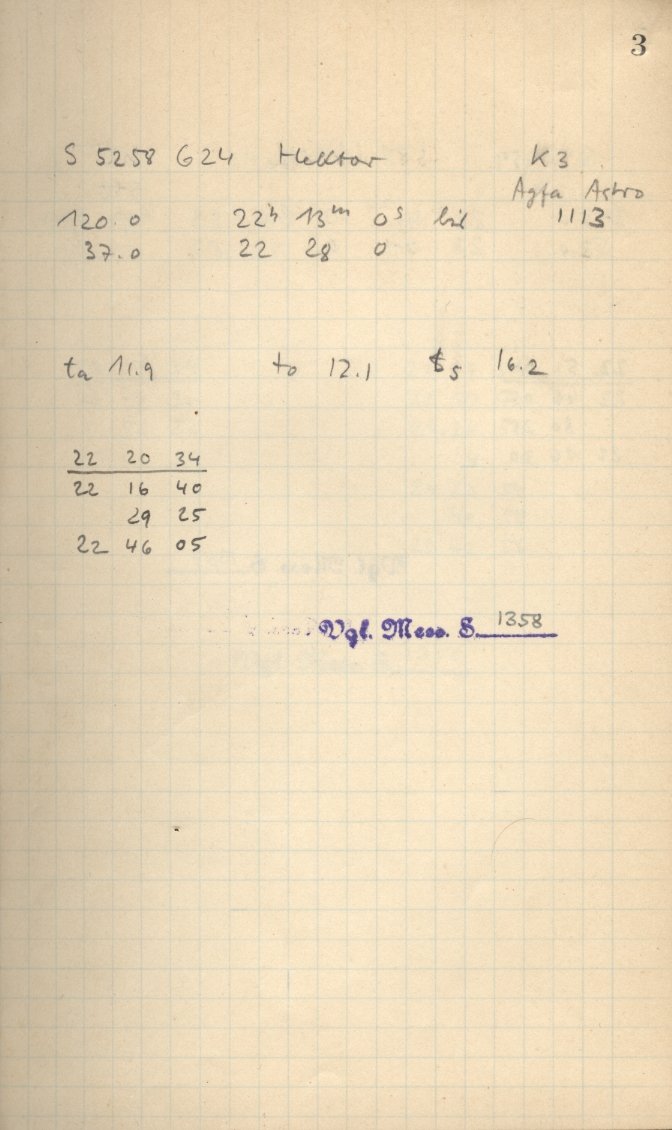 3
S 5258 624 Hektor K3
Agfa Astro
120.0 22h 13m 0s bis 1113
37.0 22 28 0
ta 11.9 to 12.1 ts 16.2
22 20 34
22 16 40
29 25
22 46 05
Vgl. Mess. S. 1358